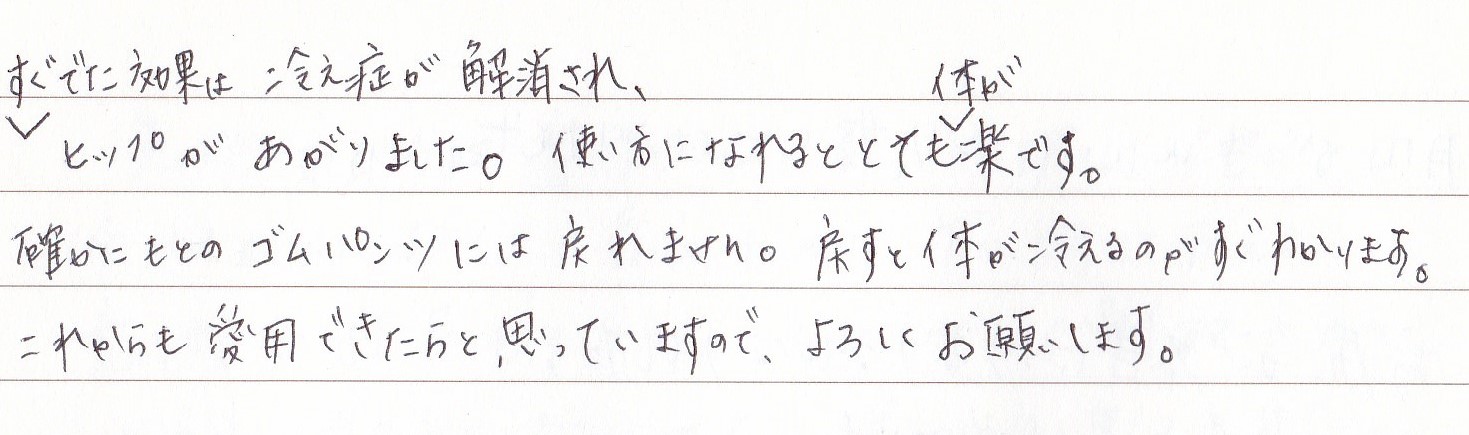 すぐでた効果は冷え症が解消され、
体が
ヒップがあがりました。使い方になれるととても楽です。
確かにもとのゴムパンツには戻れません。戻すと体が冷えるのがすぐわかります。
これからも愛用できたらと思っていますので、よろしくお願いします。